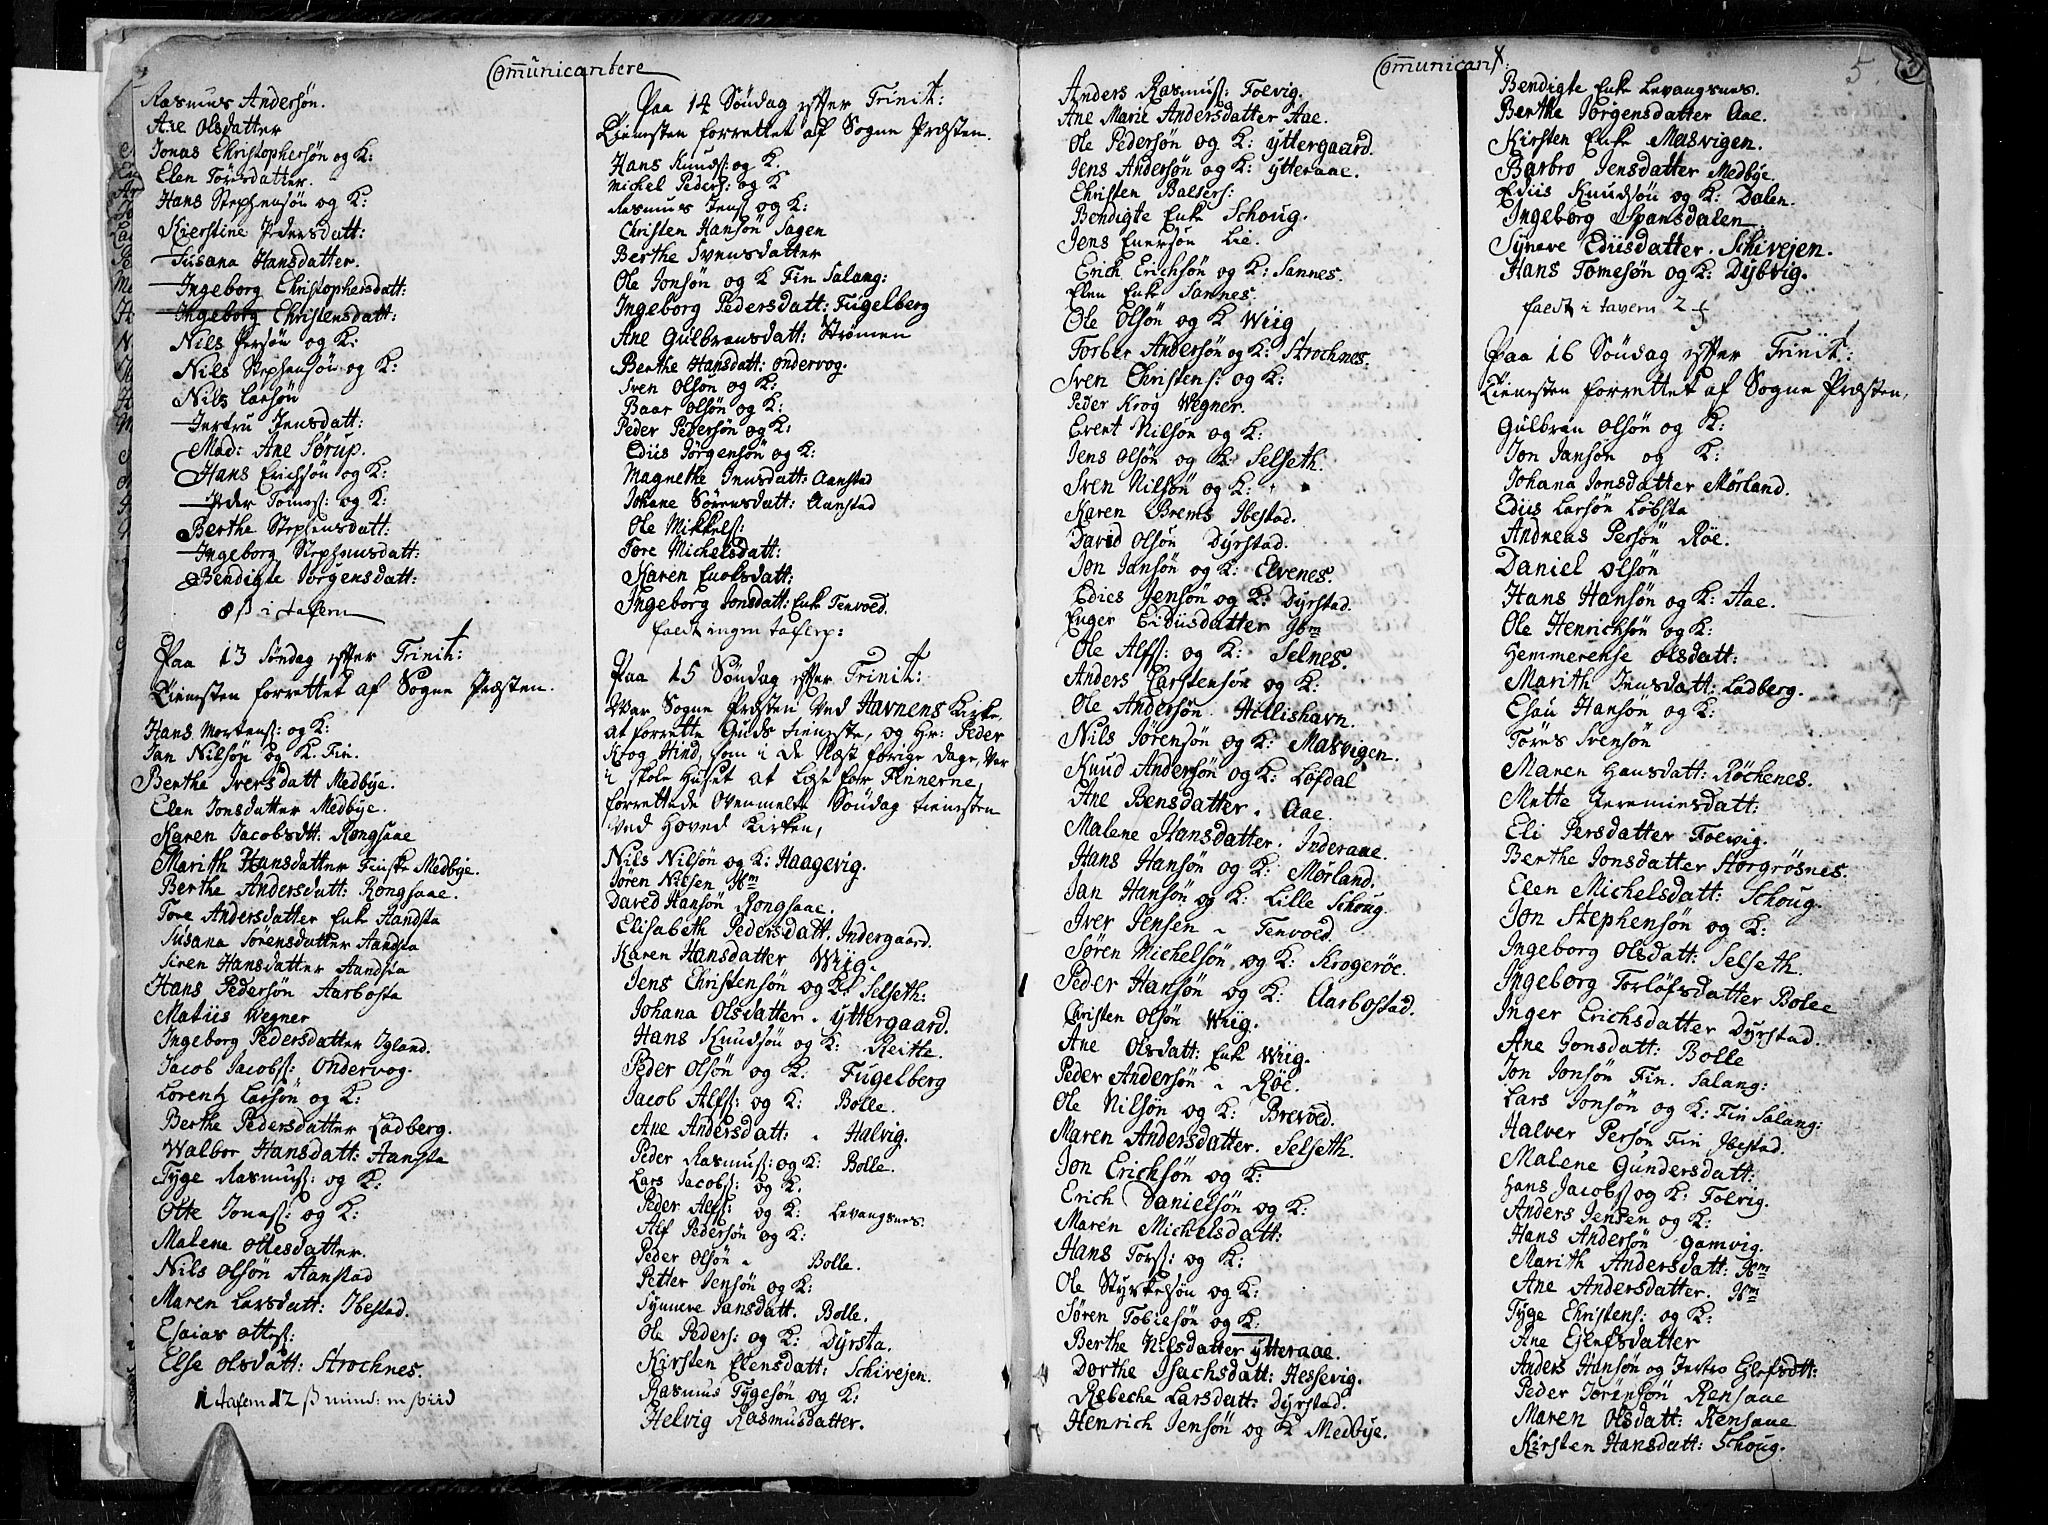 Comunicantere
Rasmus Andersøn.
Ane Olsdatter
Jonas Christophersøn og K:
Elen Tørisdatter.
Hans Stephensøn og K:
Kierstine Pedersdatt:
Susana Hansdatter.
Ingeborg Christophersdatt:
Ingeborg Christensdatt:
Nils Persøn og K:
Nils Stephensøn og K:
Nils Larsøn
Jertru Jensdatt:
Mad: Ane Sørup.
Hans Erichsøn og K:
Peder Tomes: og K:
Berthe Stephensdatt:
Ingeborg Stephensdatt:
Bendigte Jørgensdatt:
8 ß i tafern
Paa 13 Søndag effter Trinit:
Tienesten forrettet af Sogne Præsten.
Hans Mortens: og K:
Jan Nilsøn og K. Fin.
Berthe Iversdatt Medbye.
Elen Jonsdatter Medbye.
Karen Jacobsdtt: Rongsaae
Marith Hansdatter Finske Medbye.
Berthe Andersdatt: Rongsaae.
Tore Andersdatter Enk Aandsta
Susana Sørensdatter Aandsta
Siren Hansdatter Aandsta
Hans Pedersøn Aarbosta
Matiis Wegner
Ingeborg Pedersdatter Igland.
Jacob Jacobs: Ondervog.
Lorentz Larsøn og K:
Berthe Pedersdatter Ladberg.
Walbor Hansdatt: Aansta
Tyge Rasmus: og K:
Otte Jonas: og K:
Malene Ottesdatter.
Nils Olsøn Aanstad
Maren Larsdatt: Ibestad.
Esaias Ottes:
Else Olsdatt: Strochnes.
1 tafern 12 ß
Paa 14 Søndag effter Trinit:
Tienesten forrettet af Sogne Præsten.
Hans Knuds: og K.
Michel Peders: og K
Rasmus Jens: og K:
Christen Hansøn Sagen
Berthe Svensdatter
Ole Jonsøn og K Fin Salang:
Ingeborg Pedersdatt: Fugelberg
Ane Gulbransdatt: Strømen
Berthe Hansdatt: Ondervog.
Sven Olsøn og K:
Baar Olsøn og K:
Peder Pedersøn og K:
Ediis Jørgensøn og K:
Magnethe Jensdatt: Aanstad
Johane Sørensdatt: Aanstad
Ole Mikkels:
Tore Michelsdatt:
Karen Enoksdatt:
Ingeborg Jonsdatt: Enk Tenvoed.
faedt ingen taferp:
Paa 15 Søndag effter Trinit:
War Sogne Præsten Ved Havnens Kirke,
at forrette Guds tieneste, og Hr: Peder
Krog Hind, som i de Næst forige dage, Var
i skole Huset at Læse for Finnerne,
forrettede Ovenmelte Søndag tienesten
Ved Hoved Kirken,
Nils Nilsøn og K: Haagevig.
Jøren Nilsen Ibm
David Hansøn Rongsaae.
Elisabeth Pedersdatt. Indergaard.
Karen Hansdatter Wiig.
Jens Christensøn og K: Selseth:
Johana Olsdatter. Yttergaard.
Hans Knudsøn og K: Reitte.
Peder Olsøn og K: Fugelberg
Jacob Alfs: og K: Bolle.
Ane Andersdatt: Halvig.
Peder Rasmus: og K: Bolle.
Lars Jacobs: og K:
Peder Alfs: og K: Levangsnes.
Alf Pedersøn og K:
Peder Olsøn Bolle.
Petter Jensøn og K:
Synnere Jansdatt. Bolle.
Ole Peders: og K: Dyrsta.
Kirsten Elensdatt: Schivejen.
Rasmus Tygesøn og K:
Helvig Rasmusdatter.
Comunicant:
5.
Anders Rasmus: Foevig.
Ane Marie Andersdatter Aae.
Ole Pedersøn og K: Yttergaard.
Jens Andersøn og K: Ytteraae.
Christen Balsers:
Bendigte Enk Schoug.
Jens Enersøn Lie.
Erick Erichsøn og K: Sannes.
Elen Enk Sannes.
Ole Olsøn og K Wiig
Torber Andersøn og K: Strochnes.
Sven Christens: og K:
Peder Krog Wegner.
Event Nilsøn og K:
Jens Olsøn og K: Selseth.
Sven Nilsøn og K:
Karen Brems Ibestad.
David Olsøn Dyrstad.
Jon Jansøn og K: Elvenes.
Edies Jensøn og K: Dyrstad.
Enger Eidiisdatter Ibm
Ole Alfs: og K: Selnes.
Anders Carstensøn og K:
Ole Andersøn Hillishavn.
Nils Jørensøn og K: Masvigen.
Knud Andersøn og K: Løfdal
Ane Bensdatter. Aae.
Malene Hansdatter. Inderaae.
Hans Hansøn og K: Mørland.
Jan Hansøn og K: Lille Schoug.
Iver Jensen Tenvoed.
Søren Michelsøn og K: Krogerøe.
Peder Hansøn og K: Aarbostad.
Christen Olsøn Wiig.
Ane Olsdatt: Enk Wiig.
Peder Andersøn Røe.
Ole Nilsøn og K: Brevoed.
Maren Andersdatter. Selseth.
Jon Ericksøn og K:
Erich Danielsøn og K:
Maren Michelsdatt:
Hans Tors: og K:
Ole Styrkesøn og K:
Søren Tobiesøn og K:
Berthe Nilsdatter Ytteraae.
Dorthe Isachsdatt: Hessevig.
Rebeche Larsdatt: Dyrstad.
Henrich Jensøn og K Medbye.
Bendigte Enk Levangsnes.
Berthe Jørgensdatter Aae.
Kirsten Enke Masvigen.
Barbro Jensdatter Medbye
Ediis Knudsøn og K: Dalen.
Ingeborg Spansdalen
Synøve Ediisdatter. Schivejen.
Hans Tomesøn og K: Dybvig.
faedt i tavern 2
Paa 16 Søndag effter Trinit:
Tienesten forrettet af Sogne Præsten,
Gulbran Olsøn og K:
Jon Jansøn og K:
Johana Jonsdatter Mørland.
Ediis Larsøn Løbsta
Andreas Persøn Røe.
Daniel Olsøn
Hans Hansøn og K: Aae.
Ole Henrichsøn og K:
Hemmerense Olsdatt:
Marith Jensdatt: Ladberg.
Esau Hansøn og K:
Tøres Svensøn
Maren Hansdatt: Røchenes.
Mette Jereminsdatt:
Eli Persdatter Foevig.
Berthe Jonsdatter Storgrøsnes.
Elen Michelsdatt: Schoug.
Jon Stephensøn og K:
Ingeborg Olsdatt: Selseth.
Ingeborg Torløfsdatter Bolle
Inger Erichsdatter Dyrstad.
Ane Jonsdatt: Bolle
Jon Jonsøn Fin. Salang:
Lars Jonsøn og K: Fin Salang:
Halver Persøn Fin Ibestad.
Malene Gundersdatt:
Hans Jacobs: og K: Foevig.
Anders Jensen og K:
Hans Andersøn Gamvig.
Marith Andersdatt: Ibm
Ane Andersdatter. Ibm
Tyge Christens: og K:
Ane Ejlefsdatter
Anders Hansøn og Jertro Elefsdtt:
Peder Jørensøn Rensaae
Maren Olsdatt: Rensaae
Kirsten Hansdatt: Schoug.